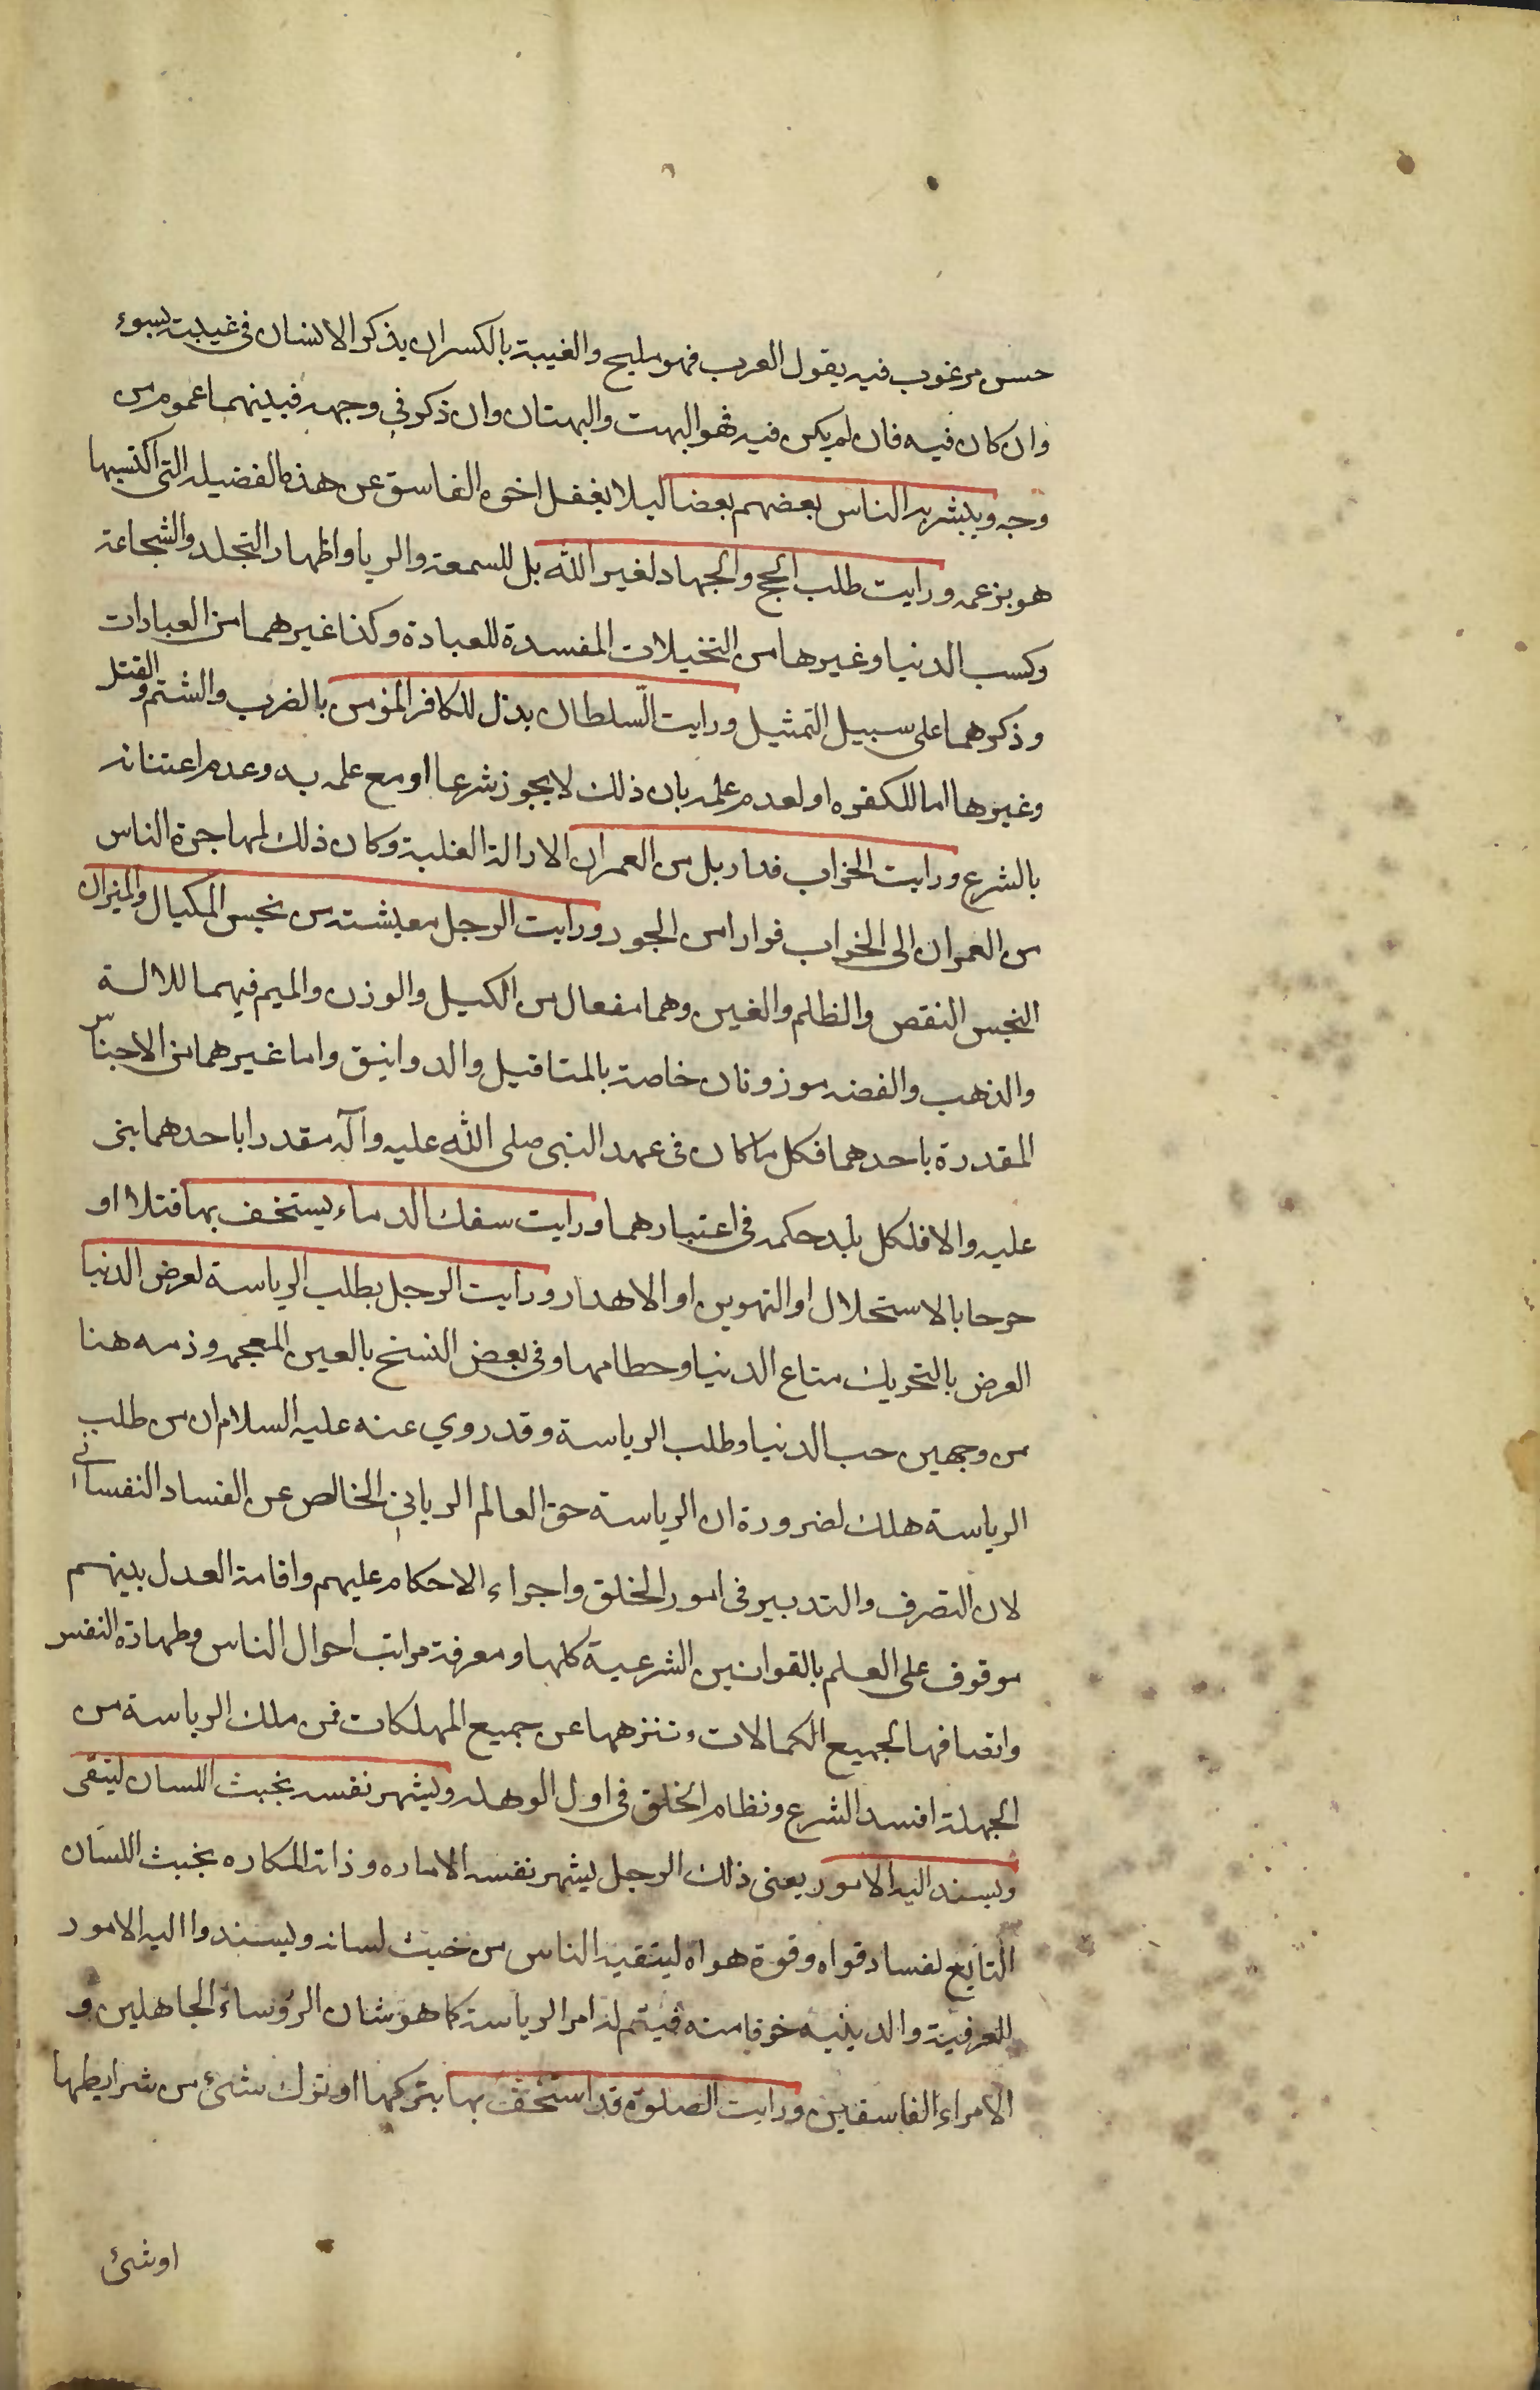 حسن مرغوب فيه يقول العرب فهو مليح والغيبة بالكسر ان يذكر الانسان فى غيبته بسوء
وان كان فيه فان لم يكن فيه فهو البهت والبهتان وان ذكر فى وجهه فبينهما عموم من
وجه ويبشر به الناس بعضهم بعضا ليلا يغفل اخوه الفاسق عن هذه الفضيله التى اكتسبها
هو بزعمه ورايت طلب الحج والجهاد لغير الله بل للسمعة والريا واظهار التجلد والشجاعة
وكسب الدنيا وغيرها من التخيلات المفسدة للعبادة وكذا غيرهما من العبادات
وذكرهما على سبيل التمثيل ورايت السلطان يذل للكافر المؤمن بالضرب والشتم والقتل
وغيرها اما لكفره او لعدم علمه بان ذلك لا يجوز شرعا او مع علمه به وعدم اعتنائه
بالشرع ورايت الخراب قد اديل من العمران الادالة الغلبة وكان ذلك لمهاجرة الناس
من العمران الى الخراب فرارا من الجور ورايت الرجل معيشته من بخس المكيال والميزان
البخس النقص والظلم والغبن وهما مفعال من الكيل والوزن والميم فيهما للالة
والذهب والفضه موزونان خاصة بالمثاقيل والدوانيق واما غيرهما من الاجناس
المقدرة باحدهما فكل ما كان فى عهد النبى صلى الله عليه وآله مقدرا باحدهما بنى
عليه والا فلكل بلد حكمه فى اعتبارهما ورايت سفك الدماء يستخف بها قتلا او
جرحا بالاستحلال او التهوين او الاهدار ورايت الرجل يطلب الرياسة لعرض الدنيا
العرض بالتحريك متاع الدنيا وحطامها وفى بعض النسخ بالغين المعجمه وذمه هنا
من وجهين حب الدنيا وطلب الرياسة وقد روي عنه عليه السلام ان من طلب
الرياسة هلك لضرورة ان الرياسة حق العالم الربانى الخالص عن الفساد النفسانى
لان التصرف والتدبير فى امور الخلق واجراء الاحكام عليهم واقامة العدل بينهم
موقوف على العلم بالقوانين الشرعية كلها ومعرفة مراتب احوال الناس وطهارة النفس
واتصافها لجميع الكمالات وتنزهها عن جميع المهلكات فمن ملك الرياسة من
الجهلة افسد الشرع ونظام الخلق فى اول الوهله ويشهر نفسه بخبث اللسان ليتقى
ويسند اليه الامور يعنى ذلك الرجل يشهر نفسه الاماره وذاته المكاره بخبث اللسان
التابع لفساد قواه وقوة هواه ليتقيه الناس من خبث لسانه ويسندوا اليه الامور
العرفية والدينيه خوفا منه فيتم له امر الرياسة كما هو شان الرؤساء الجاهلين و
الامراء الفاسقين ورايت الصلوة قد استخف بها بتركها او ترك شئ من شرايطها
اوشئ